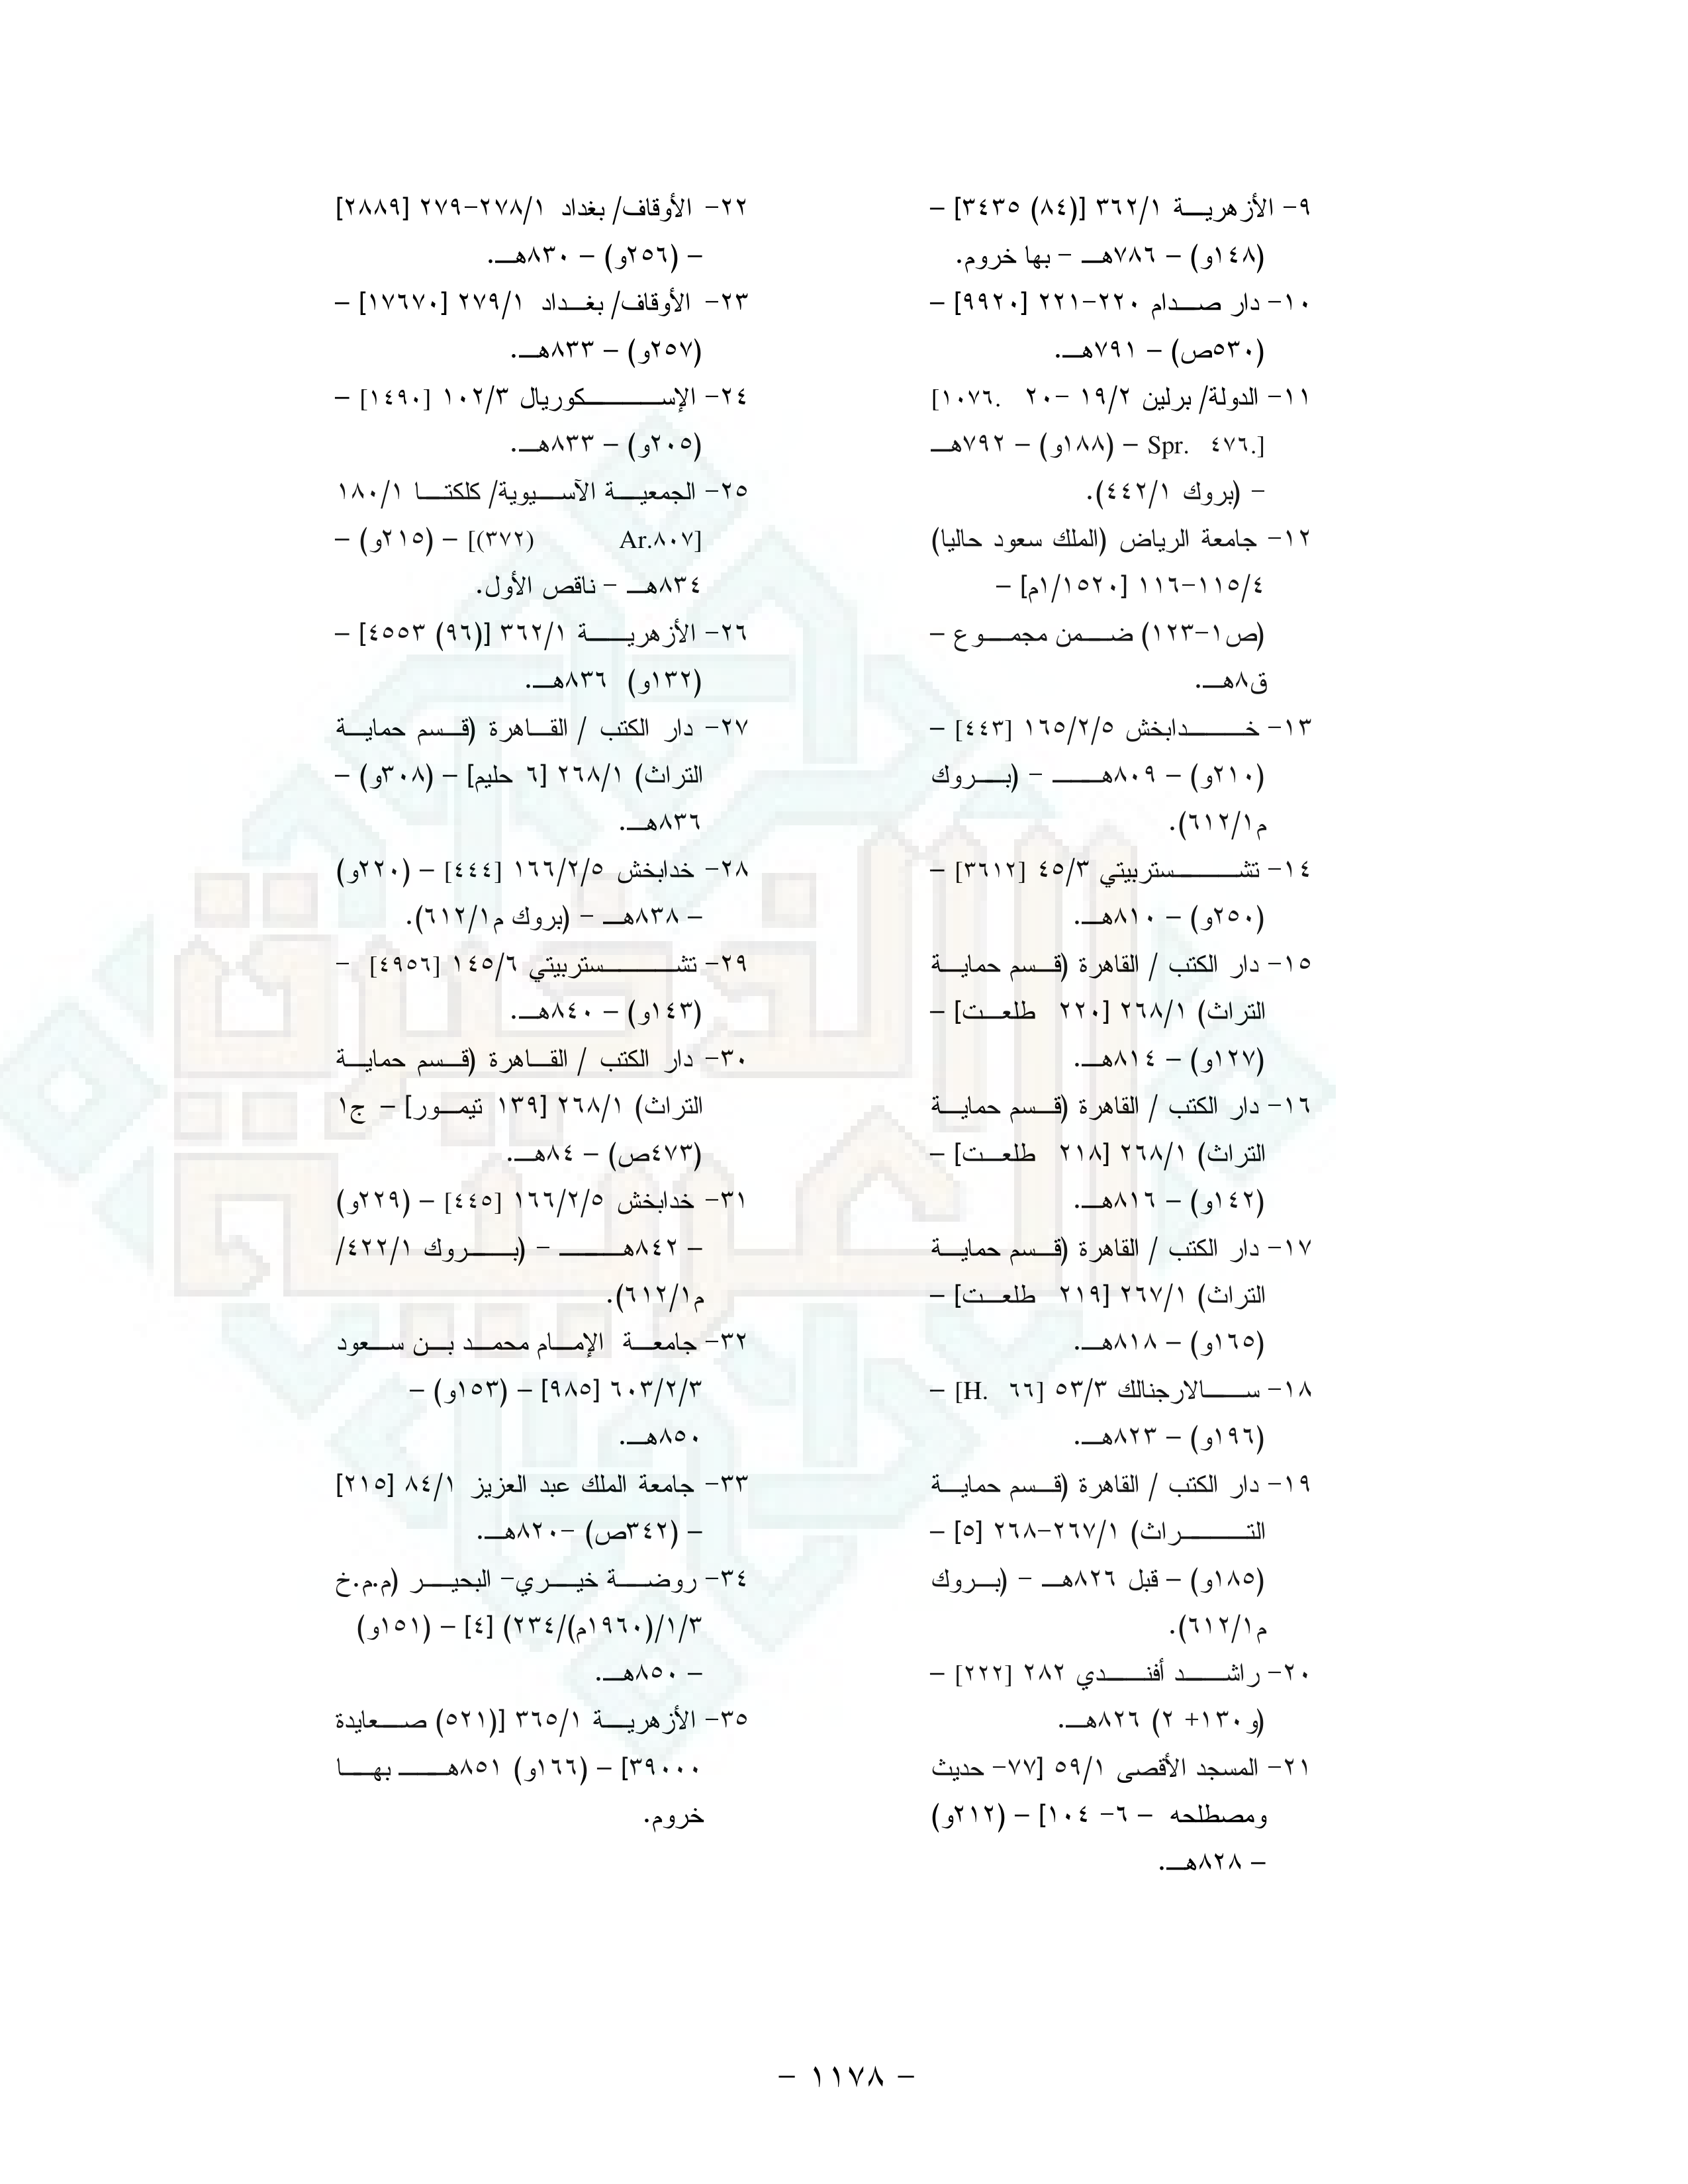 ٩- الأزهرية ٣٦٢/١ [(٨٤) ٣٤٣٥] –
(١٤٨و) – ٧٨٦هـ - بها خروم.
١٠- دار صدام ٢٢٠-٢٢١ [٩٩٢٠] –
(٥٣٠ص) – ٧٩١هـ.
١١- الدولة/ برلين ١٩/٢ -٢٠ [١٠٧٦.
Spr. ٤٧٦.] – (١٨٨و) – ٧٩٢هـ
- (بروك ٤٤٢/١).
١٢- جامعة الرياض (الملك سعود حاليا)
١١٥/٤-١١٦ [١/١٥٢٠م] –
(ص١-١٢٣) ضمن مجموع –
ق٨هـ.
١٣- خدابخش ١٦٥/٢/٥ [٤٤٣] –
(٢١٠و) – ٨٠٩هـ - (بروك
م٦١٢/١).
١٤- تشستربيتي ٤٥/٣ [٣٦١٢] –
(٢٥٠و) – ٨١٠هـ.
١٥- دار الكتب / القاهرة (قسم حماية
التراث) ٢٦٨/١ [٢٢٠ طلعت] –
(١٢٧و) – ٨١٤هـ.
١٦- دار الكتب / القاهرة (قسم حماية
التراث) ٢٦٨/١ [٢١٨ طلعت] –
(١٤٢و) – ٨١٦هـ.
١٧- دار الكتب / القاهرة (قسم حماية
التراث) ٢٦٧/١ [٢١٩ طلعت] –
(١٦٥و) – ٨١٨هـ.
١٨- سالارجنالك ٥٣/٣ [H. ٦٦] –
(١٩٦و) – ٨٢٣هـ.
١٩- دار الكتب / القاهرة (قسم حماية
التراث) ٢٦٧/١-٢٦٨ [٥] –
(١٨٥و) – قبل ٨٢٦هـ - (بروك
م٦١٢/١).
٢٠- راشد أفندي ٢٨٢ [٢٢٢] –
(و١٣٠+ ٢) ٨٢٦هـ.
٢١- المسجد الأقصى ٥٩/١ [٧٧- حديث
ومصطلحه – ٦- ١٠٤] – (٢١٢و)
– ٨٢٨هـ.
٢٢- الأوقاف/ بغداد ٢٧٨/١-٢٧٩ [٢٨٨٩]
– (٢٥٦و) – ٨٣٠هـ.
٢٣- الأوقاف/ بغداد ٢٧٩/١ [١٧٦٧٠] –
(٢٥٧و) – ٨٣٣هـ.
٢٤- الإسكوريال ١٠٢/٣ [١٤٩٠] –
(٢٠٥و) – ٨٣٣هـ.
٢٥- الجمعية الآسيوية/ كلكتا ١٨٠/١
[Ar.٨٠٧ (٣٧٢)] – (٢١٥و) –
٨٣٤هـ - ناقص الأول.
٢٦- الأزهرية ٣٦٢/١ [(٩٦) ٤٥٥٣] –
(١٣٢و) ٨٣٦هـ.
٢٧- دار الكتب / القاهرة (قسم حماية
التراث) ٢٦٨/١ [٦ حليم] – (٣٠٨و) –
٨٣٦هـ.
٢٨- خدابخش ١٦٦/٢/٥ [٤٤٤] – (٢٢٠و)
– ٨٣٨هـ - (بروك م٦١٢/١).
٢٩- تشستربيتي ١٤٥/٦ [٤٩٥٦] -
(١٤٣و) – ٨٤٠هـ.
٣٠- دار الكتب / القاهرة (قسم حماية
التراث) ٢٦٨/١ [١٣٩ تيمور] – ج١
(٤٧٣ص) – ٨٤هـ.
٣١- خدابخش ١٦٦/٢/٥ [٤٤٥] – (٢٢٩و)
– ٨٤٢هـ - (بروك ٤٢٢/١/
م٦١٢/١).
٣٢- جامعة الإمام محمد بن سعود
٦٠٣/٢/٣ [٩٨٥] – (١٥٣و) –
٨٥٠هـ.
٣٣- جامعة الملك عبد العزيز ٨٤/١ [٢١٥]
– (٣٤٢ص) -٨٢٠هـ.
٣٤- روضة خيري- البحير (م.م.خ
١/٣/(١٩٦٠م)/٢٣٤) [٤] – (١٥١و)
– ٨٥٠هـ.
٣٥- الأزهرية ٣٦٥/١ [(٥٢١) صعايدة
٣٩٠٠٠] – (١٦٦و) ٨٥١هـ بها
خروم.
– ١١٧٨ –
الذخيرة
العربية